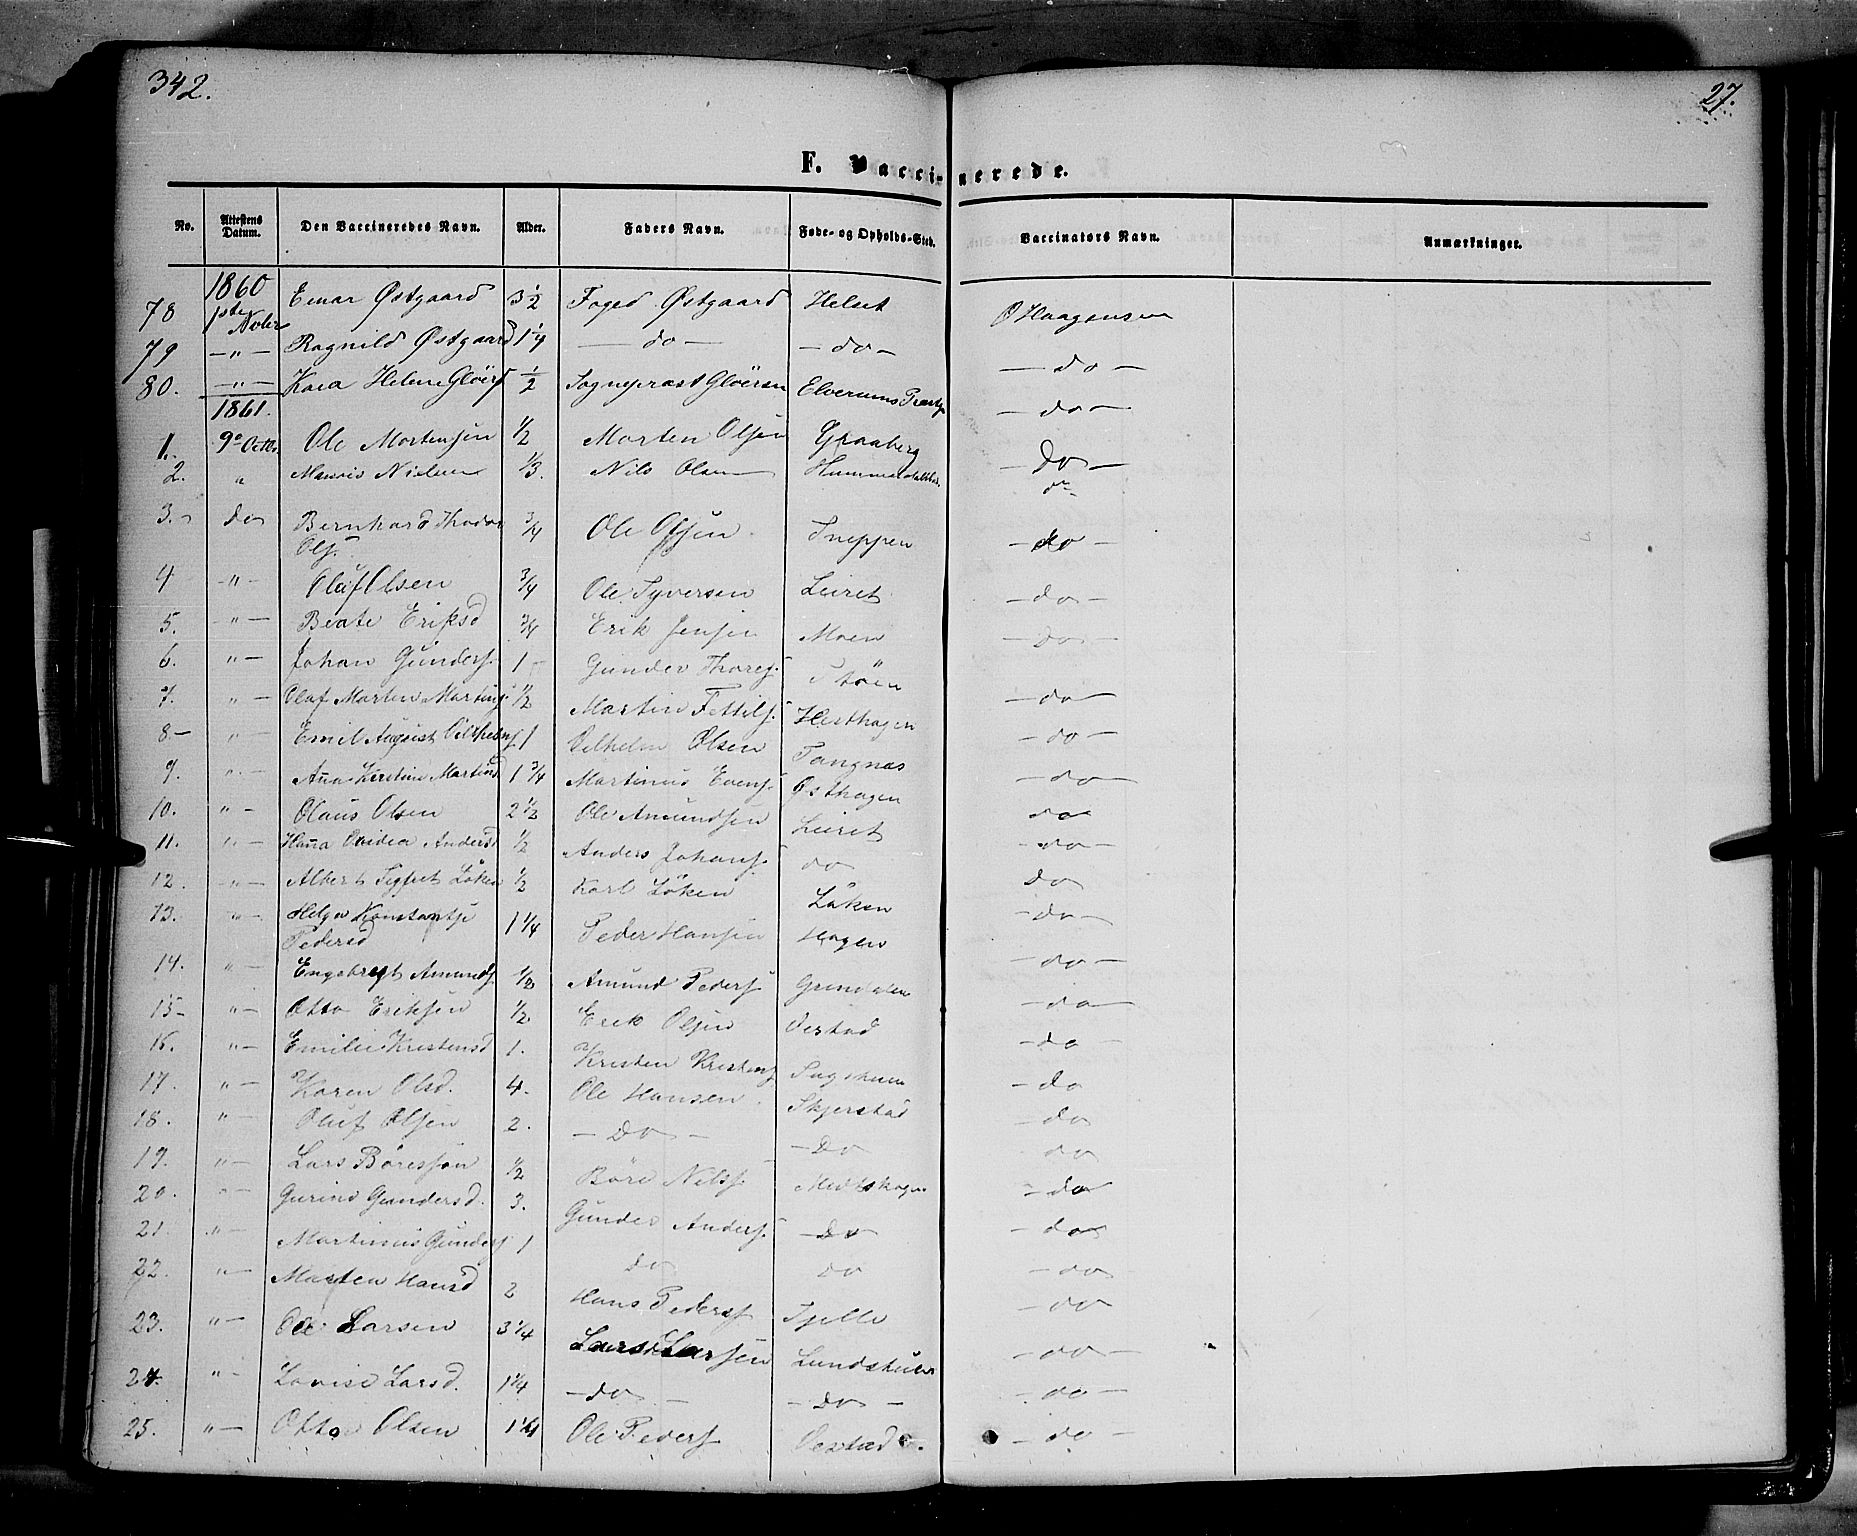 342.
27.
F. Vaccinerede.
No. Attestens Datum. Den Vaccineredes Navn. Alder. Faders Navn. Føde- og Opholds-Sted. Vaccinators Navn. Anmærkninger.
1860
78 1ste Nobr Einar Østgaard 3 1/2 Foged Østgaard Helset O Haagensen
79 —"— Ragnild Østgaard 1 1/4 — do — — do — — do —
80. —"— Kaia Helene Glöers 1/2 Sognepræst Glöersen Elverums Præstg — do —
1861.
1. 9e Octbr Ole Mortensen 1/2 Morten Olsen Graaberg — Do —
2. " Nielsen 1/3. Nils Olsen do
3. do Bernhard Thodor 3/4 Ole Olsen Sneppen — do —
Ols.
4 —"— Oluf Olsen 3/4 Ole Syversen Leiret — do —
5. —"— Beate Eriksd 3/4 Erik Jensen Moen — Do —
6. "— Johan Gunders. 1 — Gunder Thores. Støen — do —
7. "— Olaf Morten Martins. 1/2 Martin Kettils. Hesthagen — do —
8— "— Emil August Vilhelms 1 Vilhelm Olsen Tangnæs — do
9. "— Ana Kirstine Martinsd 1 3/4 Martinus Evens. Østhagen do
10. "— Olaus Olsen 2 1/2 Ole Amundsen Leiret — do —
11. "— Hana Ovidea Andersd 1/2 Anders Johans. do do
12. —"— Albert Sigfret Löken 1/2 Karl Löken Löken — do —
13. "— Helga Konstantse 1 1/4 Peder Hansen Hagen — do —
Pedersd
14. "— Engebregt Amunds. 1/8 Amund Peders. Grindalen — do
15— "— Otto Eriksen 1/2. Erik Olsen Vestad — do —
16. "— Emilie Kristensd 1. Kristen Kristens — do
17. "— Karen Olsd. 4. Ole Hansen. Skjerstad do
18. "— Oluf Olsen 2. — Do — — Do do
19. "— Lars Böresson 1/2 Böre Nils. Midtskogen — do
20. "— Gurine Gundersd. 3. Gunder Anders. — Do — do
21. "— Martinus Gunders 1 do do — do
22. "— Marten Hansd 2 Hans Peders Tjelle — do
23. "— Ole Larsen 3 1/4 Lars Larsen — do —
24. "— Lovise Larsd. 1 1/4 — do — — Do — — do —
25. "— Otto Olsen 1 1/4 Ole Peders Vestad. — do —